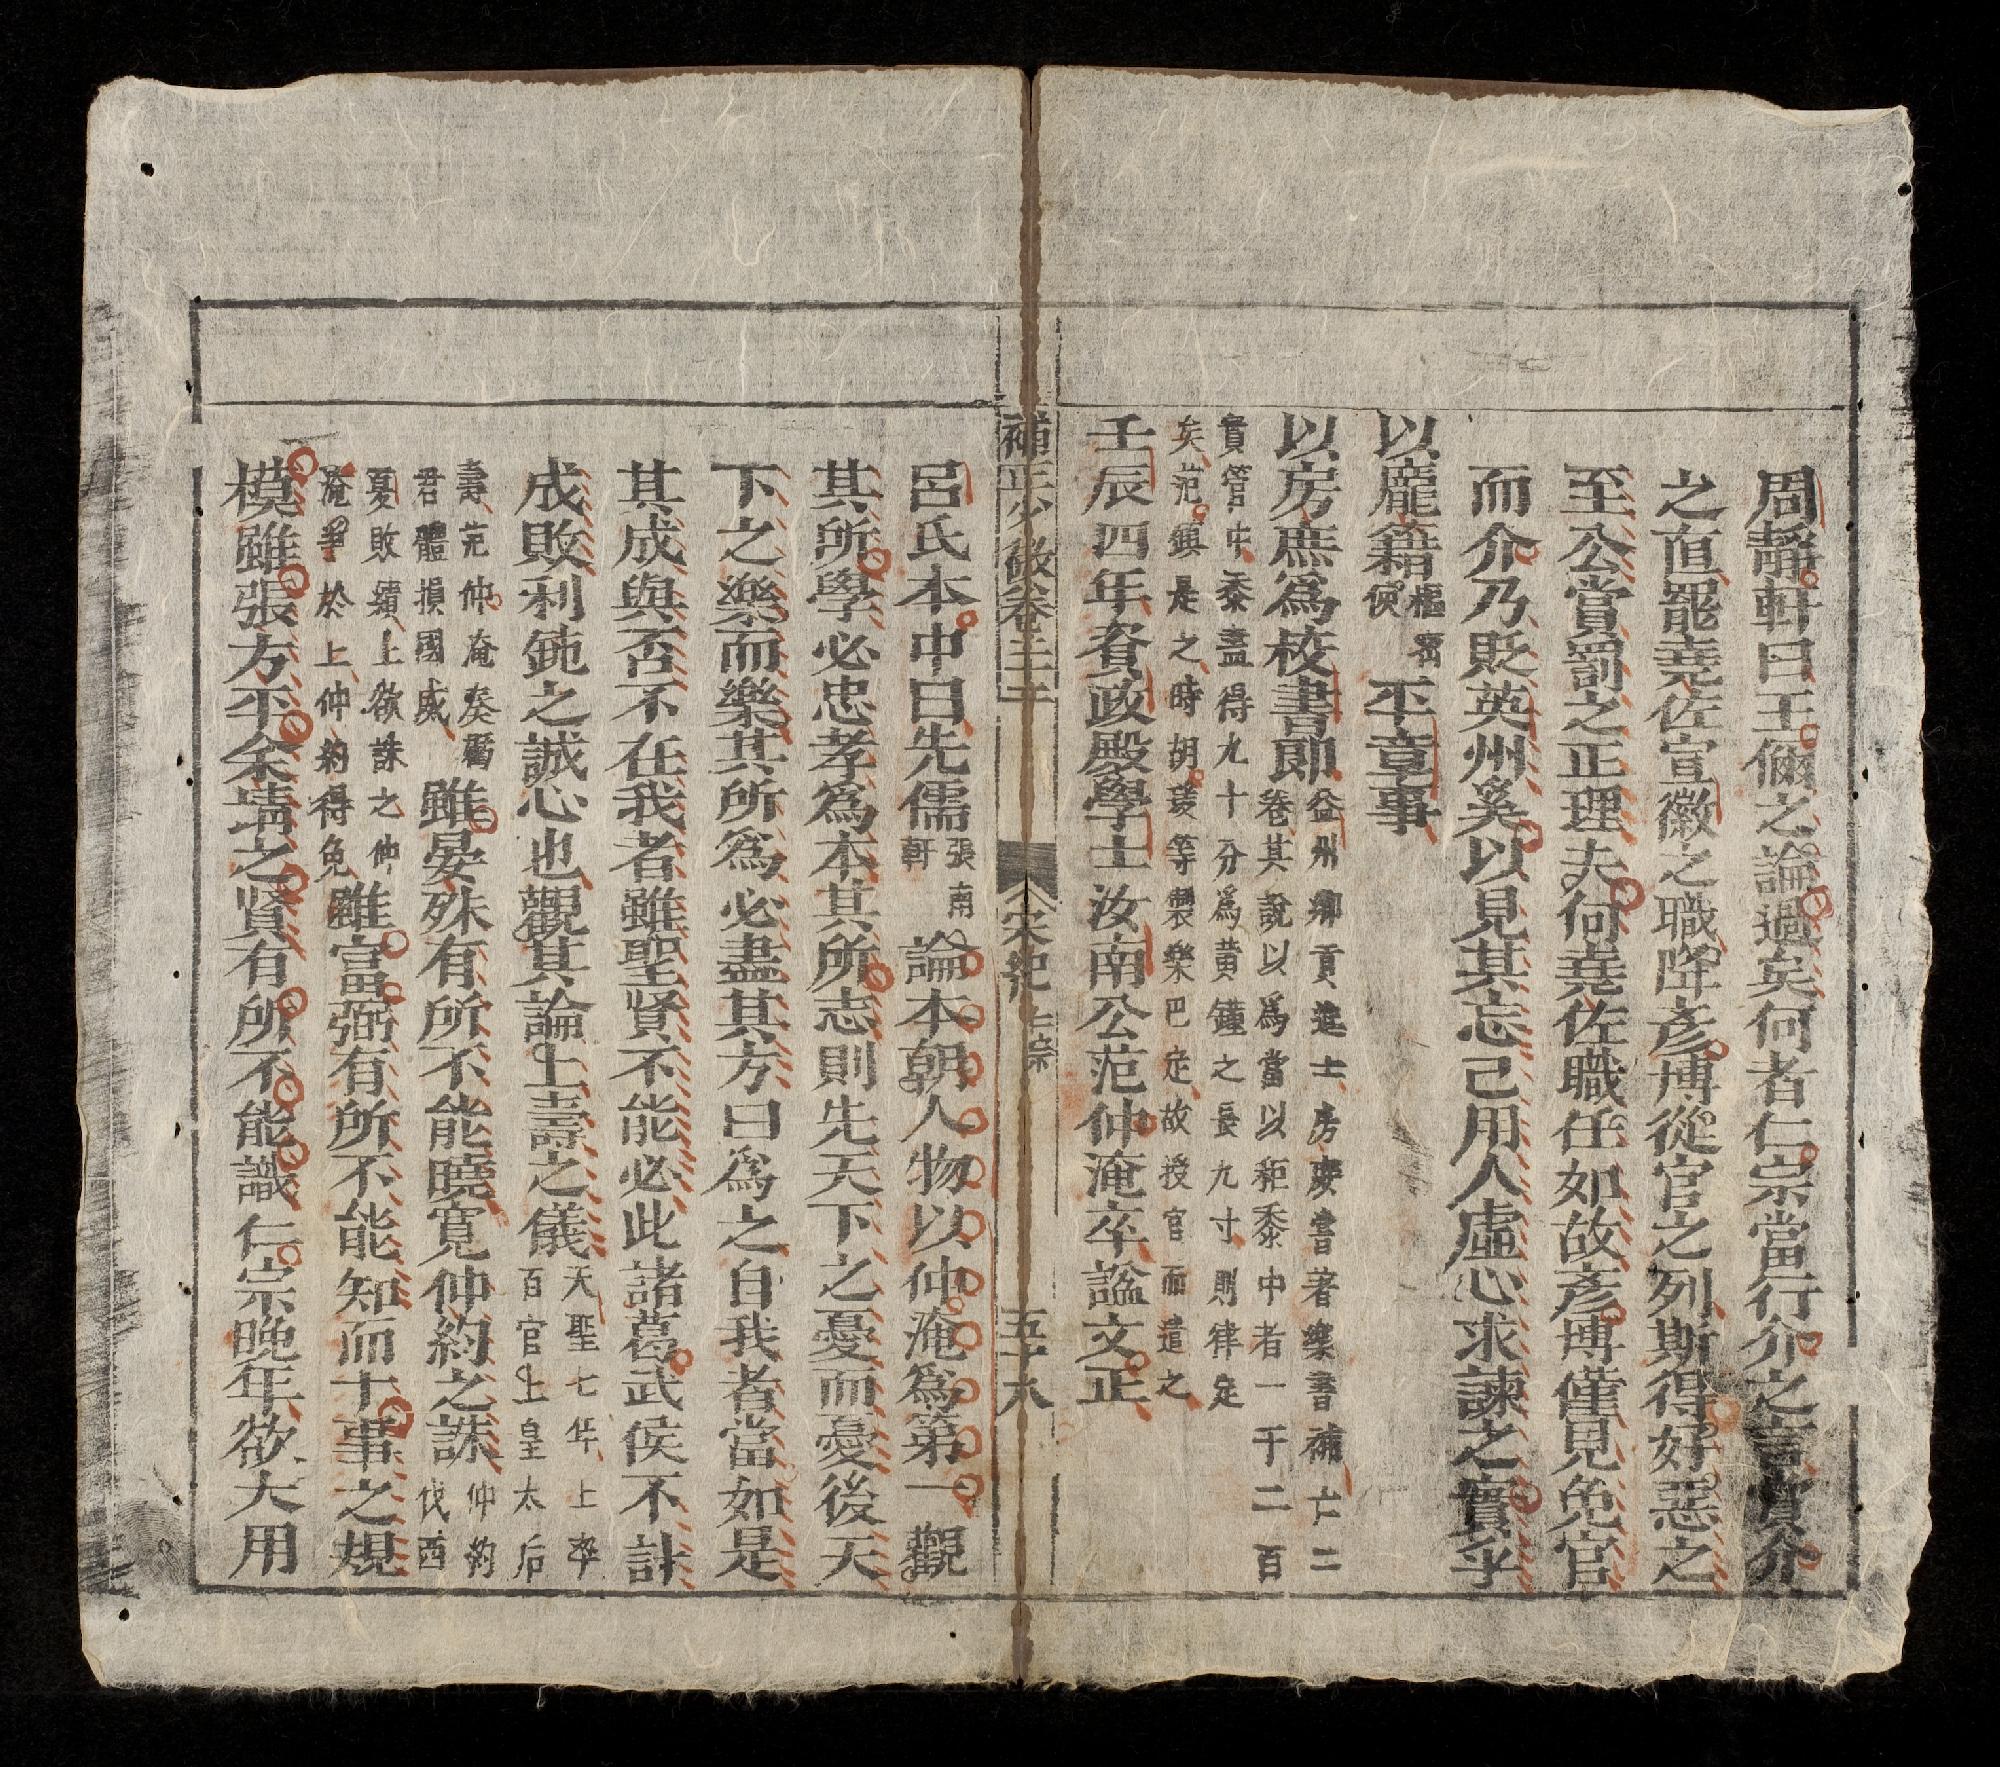 周靜軒曰王偁之論過矣何者仁宗當行介之言賞介
之直罷堯佐宣徽之職降彥博從官之列斯得好惡之
至公賞罰之正理夫何堯佐職任如故彥博僅見免官
而介乃貶英州奚以見其忘己用人虛心求諫之實乎
以龐籍樞密使平章事
以房庶爲校書郎益州鄉貢進士房庶嘗著樂書補亡二
卷其說以爲當以秬黍中者一千二百
實管中黍盡得九十分爲黃鐘之長九寸則律定
矣范鎮是之時胡瑗等製樂巴定故授官而遣之
壬辰四年資政殿學士汝南公范仲淹卒諡文正
補正少微卷三十 宋紀 仁宗 五十八
呂氏本中曰先儒張南軒論本朝人物以仲淹爲第一觀
其所學必忠孝爲本其所志則先天下之憂而憂後天
下之樂而樂其所爲必盡其方曰爲之自我者當如是
其成與否不在我者雖聖賢不能必此諸葛武侯不計
成敗利鈍之誠心也觀其論上壽之儀天聖七年上率
百官上皇太后
壽范仲淹奏虧
君體損國威雖晏殊有所不能曉寬仲約之誅仲約
伐酉
夏敗績上欲誅之仲
淹爭於上仲約得免雖富弼有所不能知而十事之規
模雖張方平余靖之賢有所不能識仁宗晚年欲大用